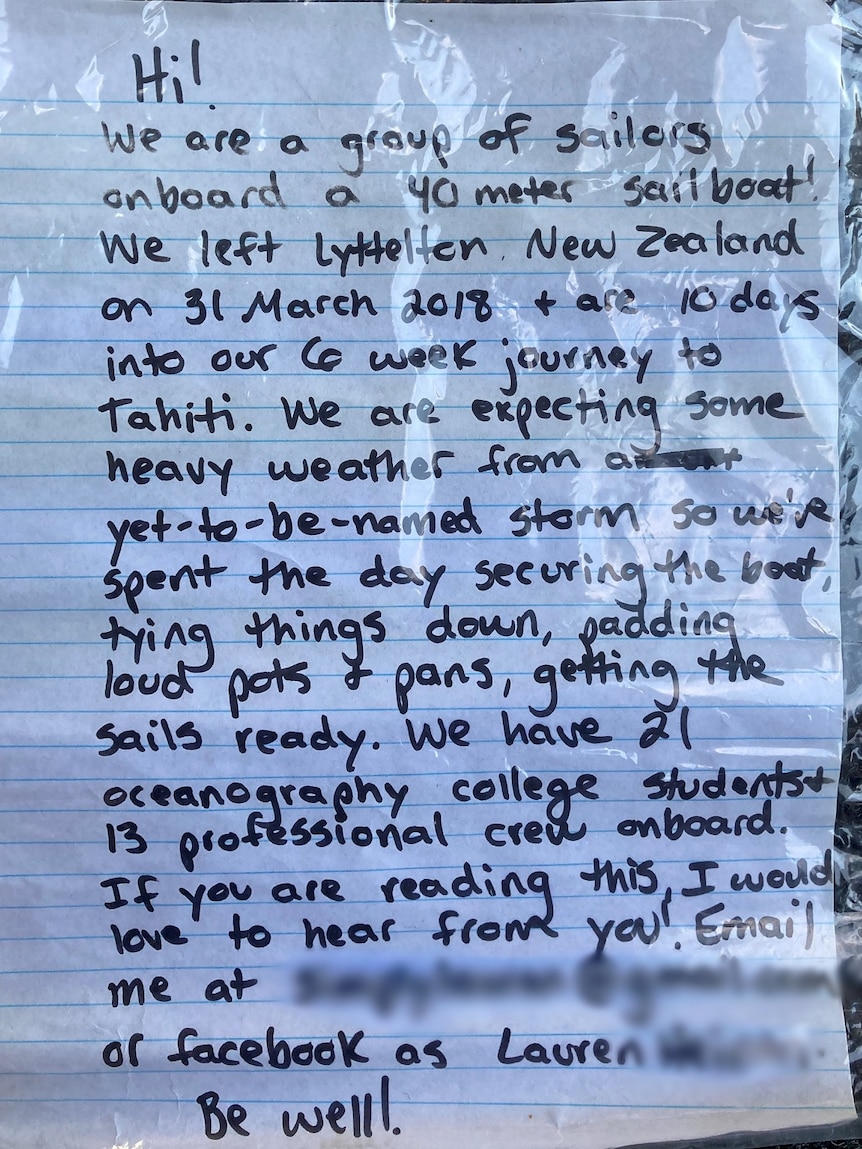 Hi!
We are a group of sailors
onboard a 40 meter sailboat!
We left Lyttelton, New Zealand
on 31 March 2018 + are 10 days
into our 6 week journey to
Tahiti. We are expecting some
heavy weather from a
yet-to-be-named storm so we've
spent the day securing the boat,
tying things down, padding
loud pots & pans, getting the
sails ready. We have 21
oceanography college students +
13 professional crew onboard.
If you are reading this, I would
love to hear from you! Email
me at
or facebook as Lauren
Be well!